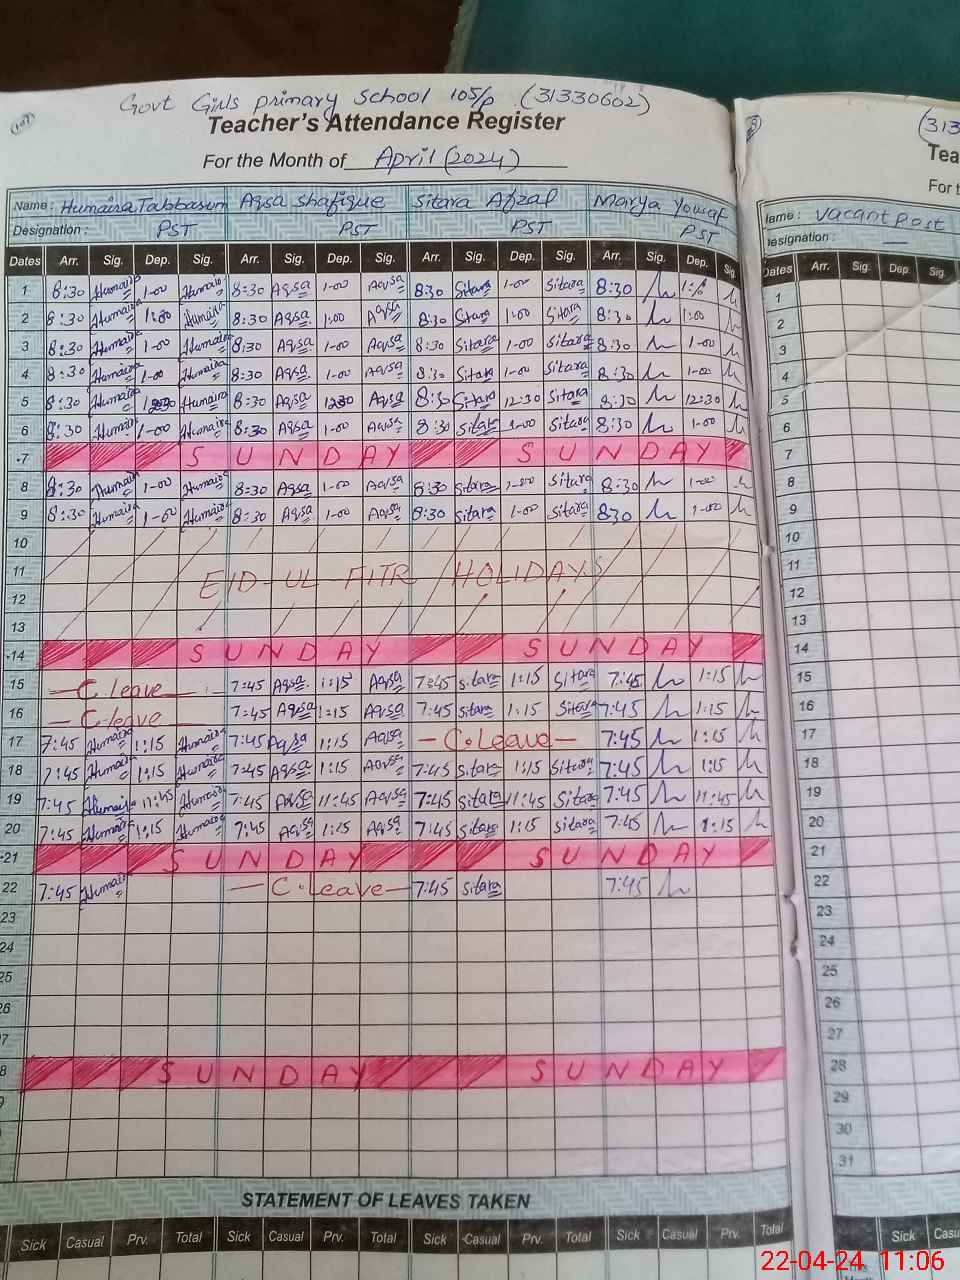 Govt Girls primary School 105/p (31330602)
Teacher's Attendance Register
For the Month of April (2024)
Name : Humaira Tabbasum Aqsa Shafique Sitara Afzal Marya Yousaf
Designation : PST PST PST PST
Dates Arr. Sig. Dep. Sig. Arr. Sig. Dep. Sig. Arr. Sig. Dep. Sig. Arr. Sig. Dep. Sig.
1 8:30 Humaira 1-00 Humaira 8:30 Aqsa 1-00 Aqsa 8:30 Sitara 1-00 Sitara 8:30
2 8:30 Humaira 1:00 Humaira 8:30 Aqsa 1:00 Aqsa 8:30 Sitara 1:00 Sitara 8:30 1:00
3 8:30 Humaira 1-00 Humaira 8:30 Aqsa 1-00 Aqsa 8:30 Sitara 1-00 Sitara 8:30 1-00
4 8:30 Humaira 1-00 Humaira 8:30 Aqsa 1-00 Aqsa 8:30 Sitara 1-00 Sitara 8:30 1-00
5 8:30 Humaira Humaira 8:30 Aqsa 1230 Aqsa 8:30 Sitara 12:30 Sitara 8:30 12:30
6 8:30 Humaira 1-00 Humaira 8:30 Aqsa 1-00 Aqsa 8:30 Sitara 1-00 Sitara 8:30 1-00
7 SUNDAY SUNDAY
8 8:30 Humaira 1-00 Humaira 8:30 Aqsa 1-00 Aqsa 8:30 Sitara 1-00 Sitara 8:30 1-00
9 8:30 Humaira 1-00 Humaira 8:30 Aqsa 1-00 Aqsa 8:30 Sitara 1-00 Sitara 830 1-00
10
11 EID-UL FITR HOLIDAYS
12
13
14 SUNDAY SUNDAY
15 C.leave 7:45 Aqsa 1:15 Aqsa 7:45 Sitara 1:15 Sitara 7:45 1:15
16 C-leave 7:45 Aqsa 1:15 Aqsa 7:45 Sitara 1:15 Sitara 7:45 1:15
17 7:45 Humaira 1:15 Humaira 7:45 Aqsa 1:15 Aqsa C.Leave 7:45 1:15
18 7:45 Humaira 1:15 Humaira 7:45 Aqsa 1:15 Aqsa 7:45 Sitara 1:15 Sitara 7:45 1:15
19 7:45 Humaira 11:45 Humaira 7:45 Aqsa 11:45 Aqsa 7:45 Sitara 11:45 Sitara 7:45 11:45
20 7:45 Humaira 1:15 Humaira 7:45 Aqsa 1:15 Aqsa 7:45 Sitara 1:15 Sitara 7:45 1:15
21 SUNDAY SUNDAY
22 7:45 Humaira C.Leave 7:45 Sitara 7:45
23
24
25
26
7
8 SUNDAY SUNDAY
STATEMENT OF LEAVES TAKEN
Sick Casual Prv. Total Sick Casual Prv. Total Sick Casual Prv. Total Sick Casual Prv. Total
(313
Tea
For t
Name : Vacant post
Designation : —
Dates Arr. Sig. Dep. Sig.
1
2
3
4
5
6
7
8
9
10
11
12
13
14
15
16
17
18
19
20
21
22
23
24
25
26
27
28
29
30
31
Sick Casu
22-04-24 11:06